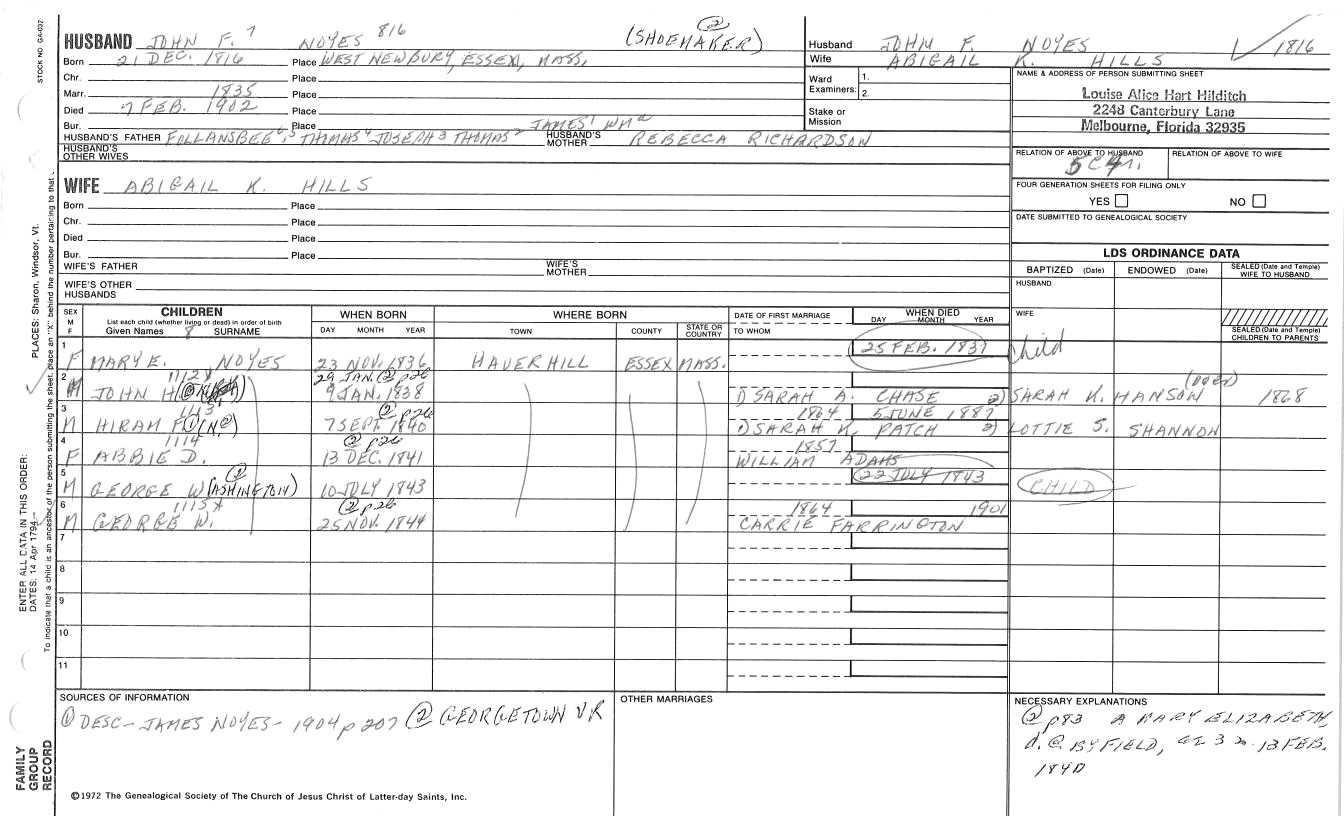 STOCK NO. GA-032
HUSBAND JOHN F. 7 NOYES 816 (SHOEMAKER) ②
Born 21 DEC. 1816 Place WEST NEWBURY, ESSEX, MASS.
Chr. Place
Marr. 1835 Place
Died 7 FEB. 1902 Place
Bur. Place
HUSBAND'S FATHER FOLLANSBEE 6, 5 THOMAS 4 JOSEPH 3 THOMAS 2 JAMES 1 WM a HUSBAND'S MOTHER REBECCA RICHARDSON
HUSBAND'S OTHER WIVES
Husband JOHN F. NOYES 1816
Wife ABIGAIL K. HILLS
Ward Examiners: 1. 2.
Stake or Mission
NAME & ADDRESS OF PERSON SUBMITTING SHEET
Louise Alice Hart Hilditch
2248 Canterbury Lane
Melbourne, Florida 32935
RELATION OF ABOVE TO HUSBAND RELATION OF ABOVE TO WIFE
WIFE ABIGAIL K. HILLS
Born Place
Chr. Place
Died Place
Bur. Place
WIFE'S FATHER WIFE'S MOTHER
WIFE'S OTHER HUSBANDS
FOUR GENERATION SHEETS FOR FILING ONLY
YES NO
DATE SUBMITTED TO GENEALOGICAL SOCIETY
LDS ORDINANCE DATA
BAPTIZED (Date) ENDOWED (Date) SEALED (Date and Temple) WIFE TO HUSBAND
HUSBAND
WIFE
SEALED (Date and Temple) CHILDREN TO PARENTS
SEX M F CHILDREN WHEN BORN WHERE BORN DATE OF FIRST MARRIAGE WHEN DIED
List each child (whether living or dead) in order of birth
Given Names 8 SURNAME DAY MONTH YEAR TOWN COUNTY STATE OR COUNTRY TO WHOM DAY MONTH YEAR
1 25 FEB. 1837 Child
F MARY E. NOYES 23 NOV. 1836 HAVERHILL ESSEX MASS.
2 1112 29 JAN. ② p26
M JOHN H 9 JAN. 1838 1) SARAH A. CHASE 2) SARAH K. HANSON 1868
3 1113 ② p26 1864 5 JUNE 1887
M HIRAM P 7 SEPT. 1840 1) SARAH K. PATCH 2) LOTTIE S. SHANNON
4 1114 ② p26 1857
F ABBIE D. 13 DEC. 1841 WILLIAM ADAMS
5 ② 22 JULY 1843
M GEORGE W(ASHINGTON) 10 JULY 1843 CHILD
6 1115 x ② p26 1864 1901
M GEORGE W. 25 NOV. 1844 CARRIE FARRINGTON
7
8
9
10
11
SOURCES OF INFORMATION
① DESC - JAMES NOYES - 1904 p 207 ② GEORGETOWN VR
OTHER MARRIAGES
NECESSARY EXPLANATIONS
② p83 A MARY ELIZABETH,
d. @ BYFIELD, ae 3 13 FEB.
1840
©1972 The Genealogical Society of The Church of Jesus Christ of Latter-day Saints, Inc.
FAMILY GROUP RECORD
ENTER ALL DATA IN THIS ORDER:
DATES: 14 Apr 1794
PLACES: Sharon, Windsor, Vt.
To indicate that a child is an ancestor of the person submitting the sheet, place an "X" behind the number pertaining to that